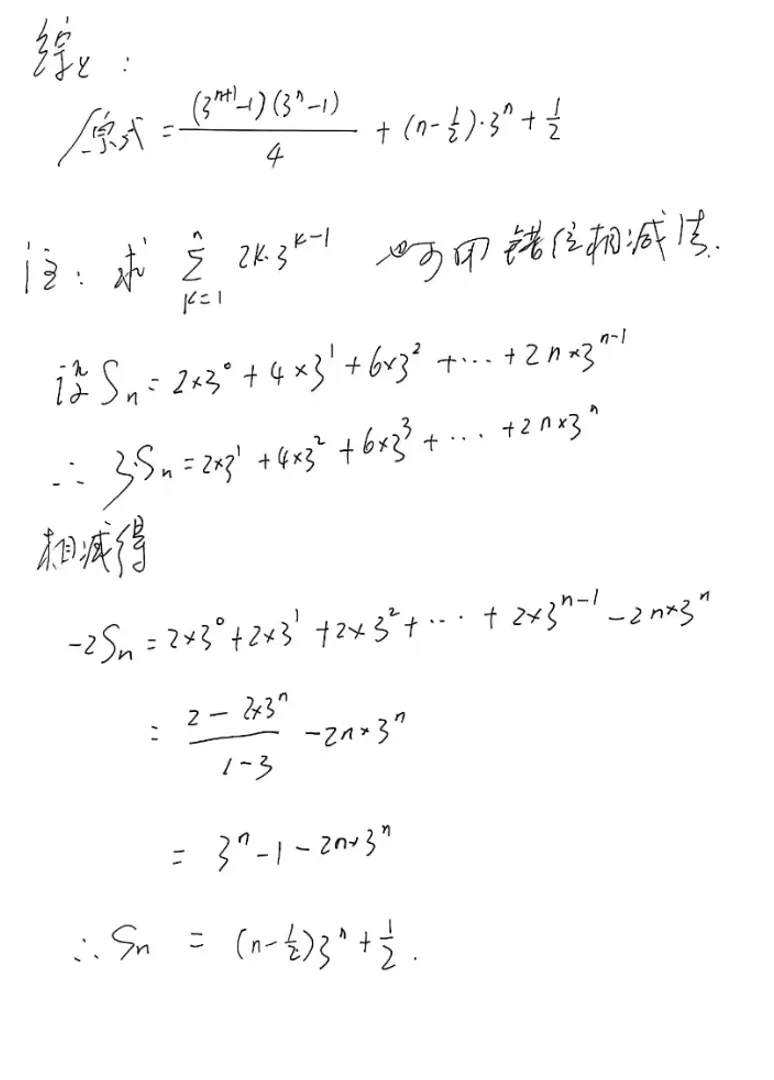 综上：
原式 = (3^{n+1}-1)(3^n-1)/4 + (n-1/2)·3^n + 1/2
注：求 ∑_{k=1}^{n} 2k·3^{k-1} 也可用错位相减法.
设 S_n = 2×3^0 + 4×3^1 + 6×3^2 + ⋯ + 2n×3^{n-1}
∴ 3S_n = 2×3^1 + 4×3^2 + 6×3^3 + ⋯ + 2n×3^n
相减得
-2S_n = 2×3^0 + 2×3^1 + 2×3^2 + ⋯ + 2×3^{n-1} - 2n×3^n
= (2 - 2×3^n)/(1-3) - 2n×3^n
= 3^n - 1 - 2n×3^n
∴ S_n = (n-1/2)3^n + 1/2.